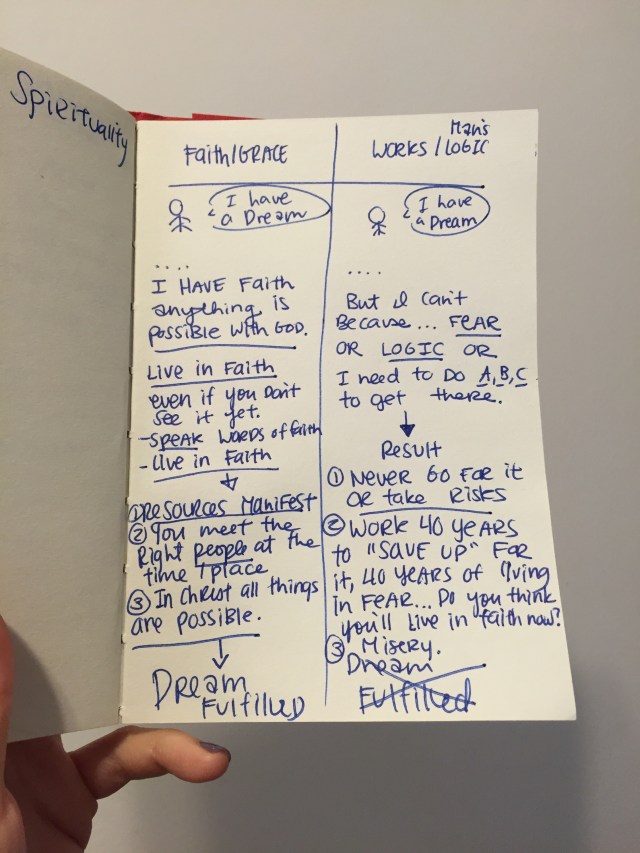 Spirituality
Faith/GRACE
I have
a Dream
....
I HAVE Faith
anything is
possible with GOD.
Live in Faith
even if you Don't
see it yet.
-SPEAK words of faith
-Live in Faith
①Resources Manifest
②You meet the
Right people at the
time/place
③In Christ all things
are possible.
Dream
Fulfilled
Man's
WORKS/LOGIC
I have
a Dream
....
But I can't
Because... FEAR
OR LOGIC OR
I need to DO A,B,C
to get there.
Result
①Never Go For it
OR take Risks
②WORK 40 YEARS
to "SAVE UP" FOR
it, 40 YEARS of living
in FEAR... Do you think
you'll live in faith now?
③Misery.
Dream
Fulfilled